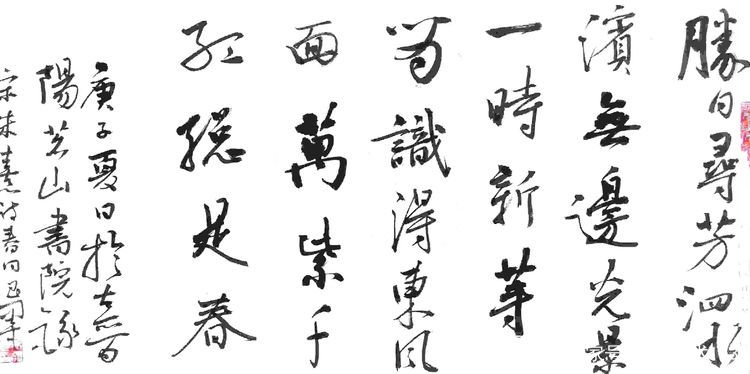 勝日尋芳泗水
濱無邊光景
一時新等
閒識得東風
面萬紫千
紅總是春
庚子夏日於古晉
陽山書院錄
宋朱熹詩春日